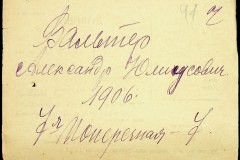 Вальтер
Александр Юлиусович
1906.
7я Поперечная – 7.